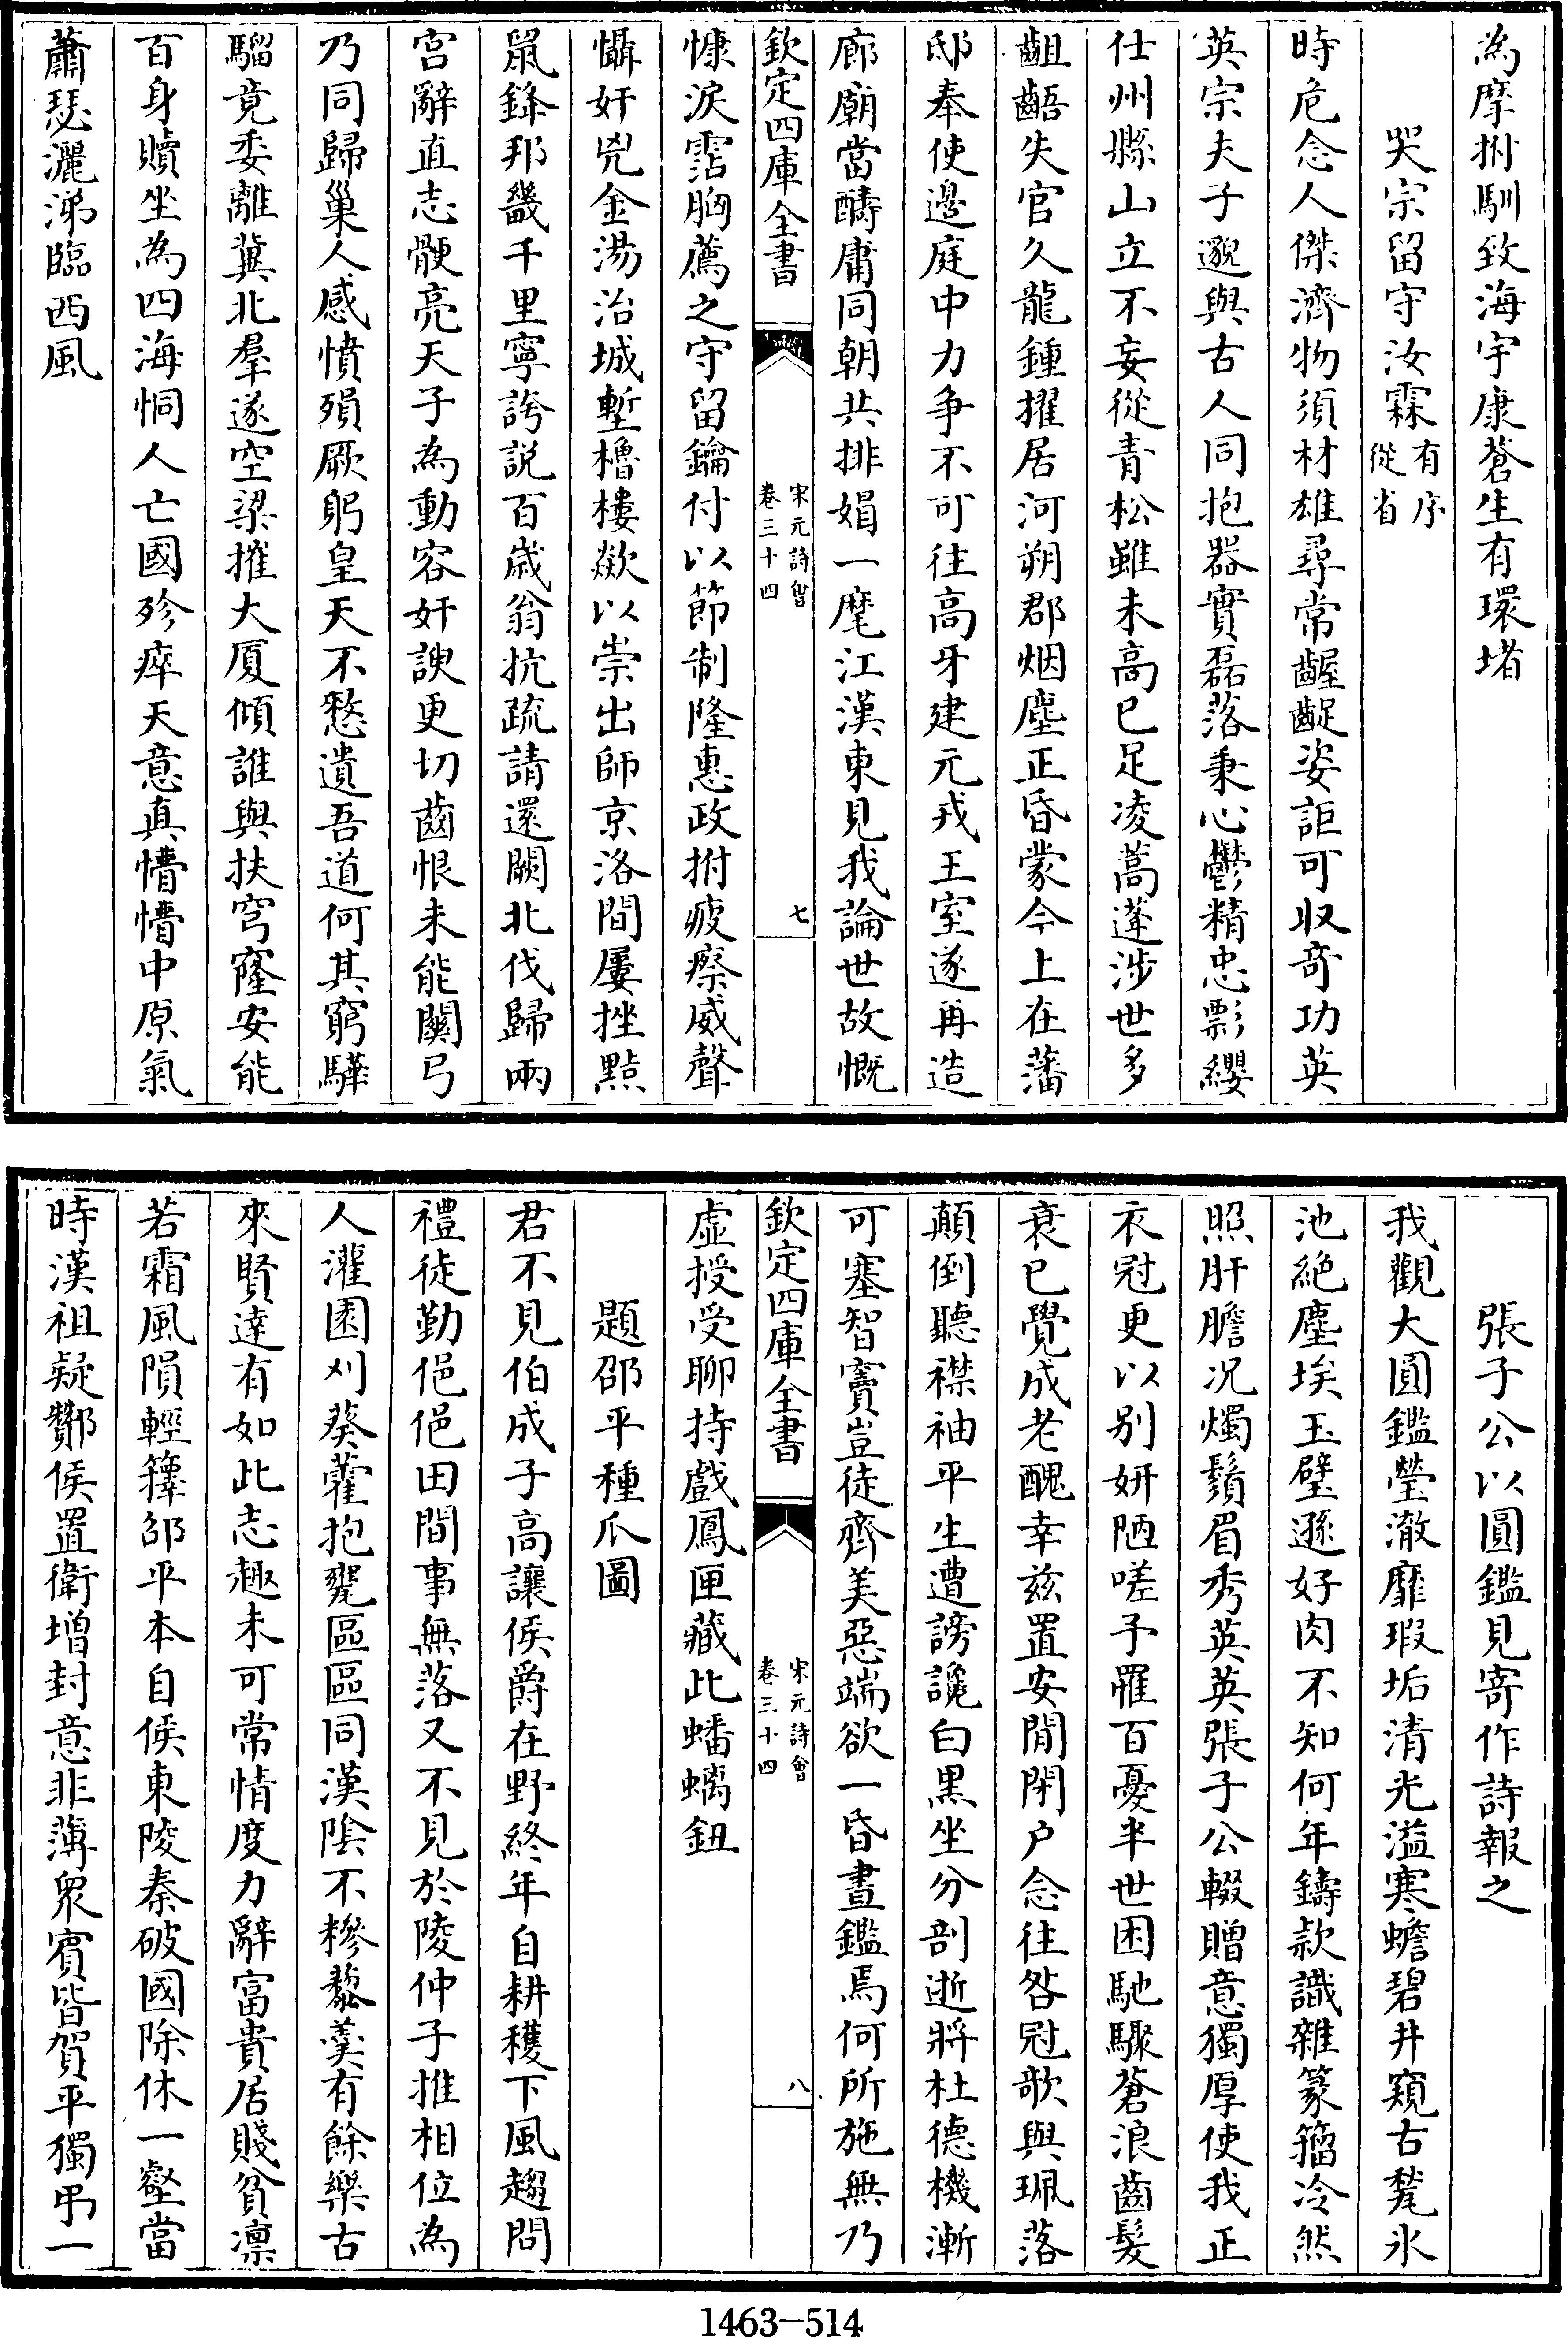 為摩拊馴致海宇康蒼生有環堵
哭宗留守汝霖有序從省
時危念人傑濟物須材雄尋常齷齪姿詎可収奇功英
英宗夫子邈與古人同抱器實磊落秉心鬱精忠影纓
仕州縣山立不妄從青松雖未高已足凌蒿蓬涉世多
齟齬失官久龍鍾擢居河朔郡烟塵正昏蒙今上在藩
邸奉使邊庭中力争不可往高牙建元戎王室遂再造
廊廟當疇庸同朝共排娼一麾江漢東見我論世故慨
欽定四庫全書
宋元詩會
卷三十四
七
慷淚霑胸薦之守留鑰付以節制隆惠政拊疲瘵威聲
懾奸兇金湯治城塹櫓樓歘以崇出師京洛間屢挫黠
䑕鋒邦畿千里寧誇説百歲翁抗疏請還闕北伐歸兩
宫辭直志骾亮天子為動容奸諛更切齒恨未能關弓
乃同歸巢人感憤殞厥躬皇天不憖遺吾道何其窮驊
騮竟委離冀北羣遂空梁摧大厦傾誰與扶穹窿安能
百身贖坐為四海恫人亡國殄瘁天意真懵懵中原氣
蕭瑟灑涕臨西風
張子公以圓鑑見寄作詩報之
我觀大圓鑑瑩澈靡瑕垢清光溢寒蟾碧井窺古甃氷
池絶塵埃玉璧遜好肉不知何年鑄款識雜篆籀冷然
照肝膽况燭鬚眉秀英英張子公輟贈意獨厚使我正
衣冠更以别妍陋嗟予罹百憂半世困馳驟蒼浪齒髮
衰已覺成老醜幸兹置安閒閉户念往咎冠歌與珮落
顛倒聽襟袖平生遭謗讒白黒坐分剖逝將杜德機漸
可塞智竇豈徒齊美惡端欲一昏晝鑑焉何所施無乃
欽定四庫全書
宋元詩會
卷三十四
八
虚授受聊持戲鳳匣藏此蟠螭鈕
題邵平種瓜圖
君不見伯成子高讓侯爵在野終年自耕穫下風趨問
禮徒勤俋俋田間事無落又不見於陵仲子推相位為
人灌園刈葵藿抱甕區區同漢陰不糝藜羹有餘樂古
來賢達有如此志趣未可常情度力辭富貴居賤貧凛
若霜風隕輕籜邵平本自侯東陵秦破國除休一壑當
時漢祖疑酇侯置衛増封意非薄衆賓皆賀平獨弔一
1463-514